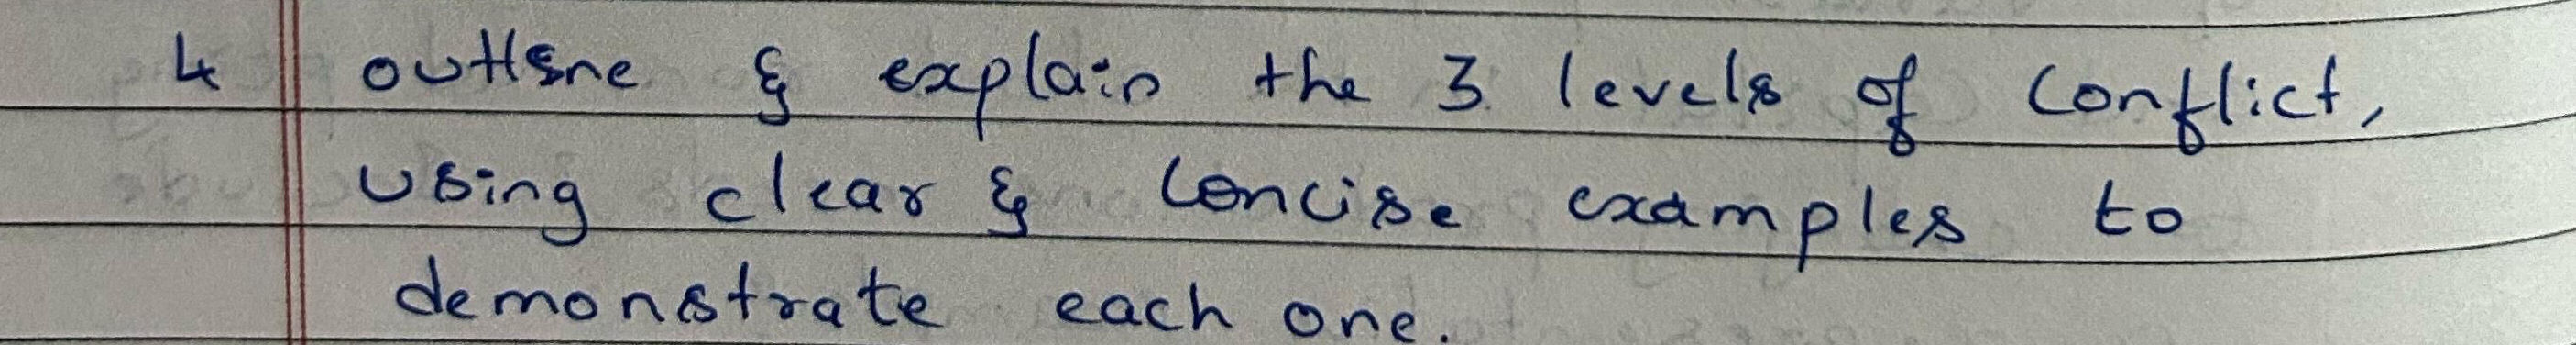 4 outline & explain the 3 levels of conflict,
using clear & concise examples to
demonstrate each one.